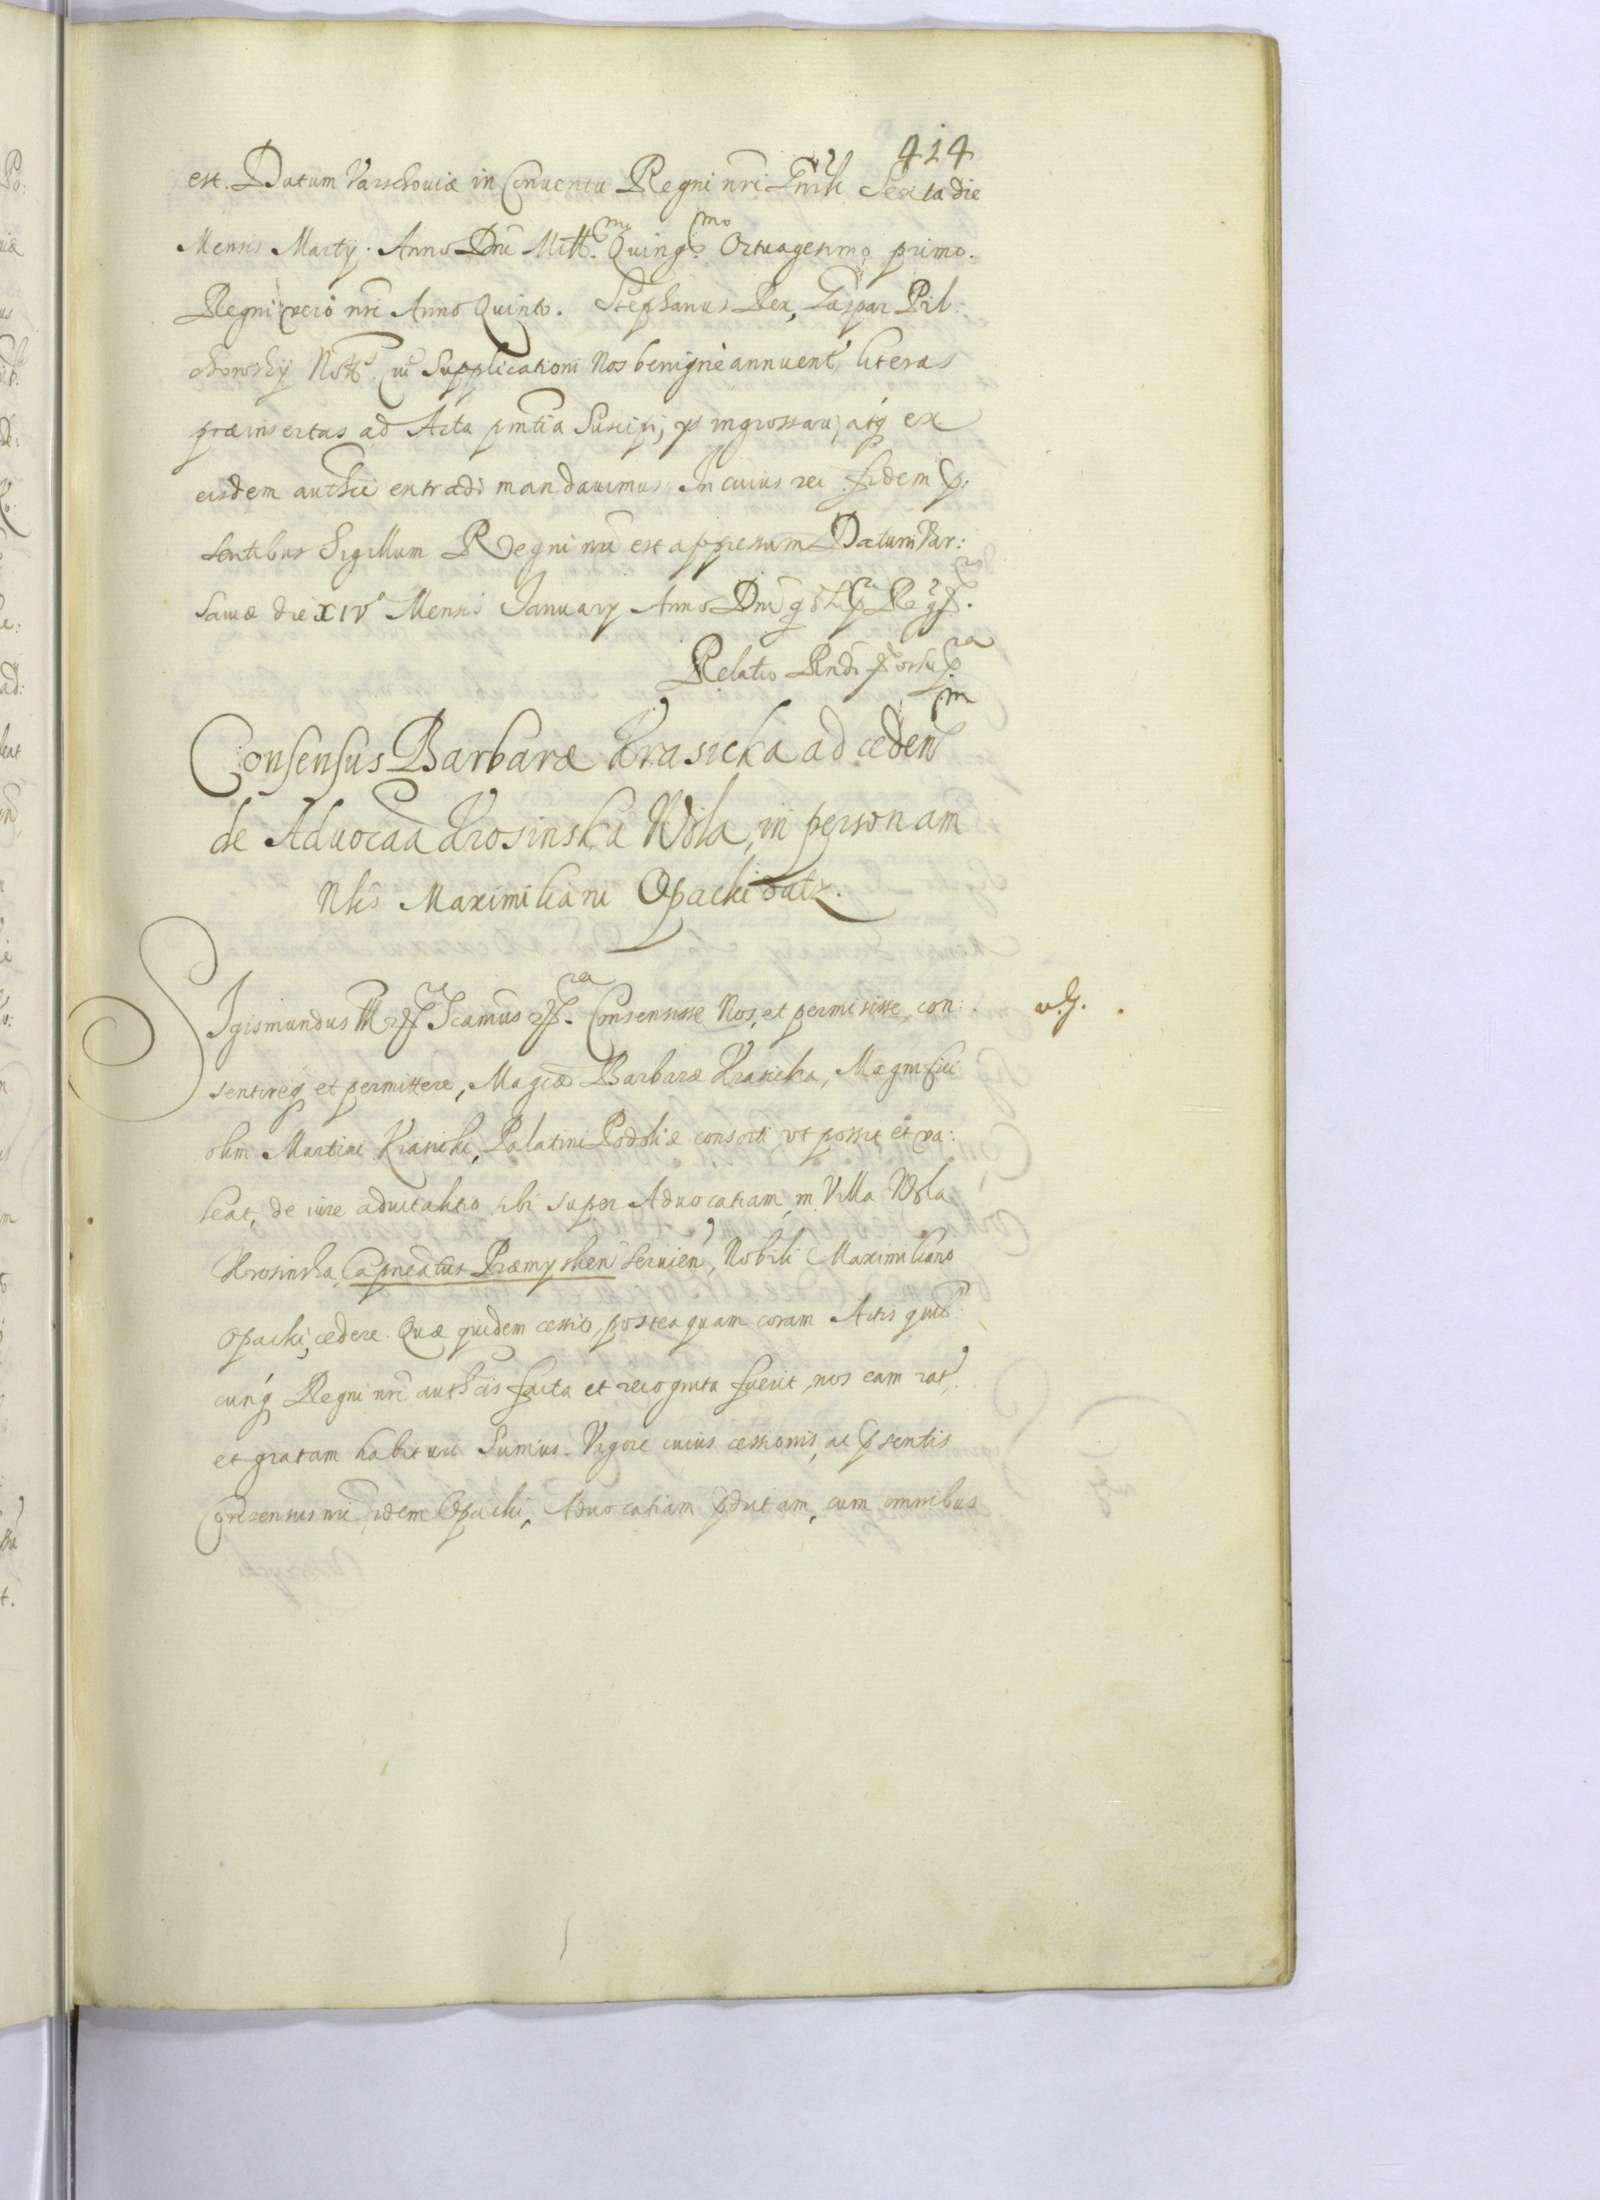 414
est. Datum Varschoviæ in Conuentu Regni nri Gnrli Sexta die
Mensis Martÿ. Anno Dni Mill.mo Quing.mo Octuagesimo primo.
Regni vero nri Anno Quinto. Stephanus Rex, Gaspar Pil:
chowskÿ Supplicationi Nos benignè annuen literas
præinsertas ad Acta pntia Suscipi, et ingrossari, atq ex
eisdem authen extradi mandauimus. In cuius rei fidem p:
sentibus Sigillum Regni nri est appressum. Datum Var:
sauiæ die XIV Mensis Januarÿ Anno Dni
Relatio
Consensus Barbaræ Krasicka ad ceden
de Aduocaa Krosinska Wola, in personam
Nlis Maximiliani Opacki datz.
Sigismundus Consensisse Nos, et permisisse, con:
sentireq et permittere, Magcæ Barbaræ Krasicka, Magnifici
olim Martini Krasicki, Palatini Podoliæ consorti vt possit et va:
leat, de iure aduitalitio sibi super Aduocatiam, in Villa Wola
Krosinska, Capneatus Præmyslien seruien, Nobili Maximiliano
Opacki, cedere. Quæ quidem cessio, posteaquam coram Actis quib:
cunq Regni nri authcis facta et recognita fuerit, nos eam rat,
et gratam habituri Sumus. Vigore cuius cessionis, ac psentis
Consensus nri, idem Opacki, Aduocatiam pdictam, cum omnibus